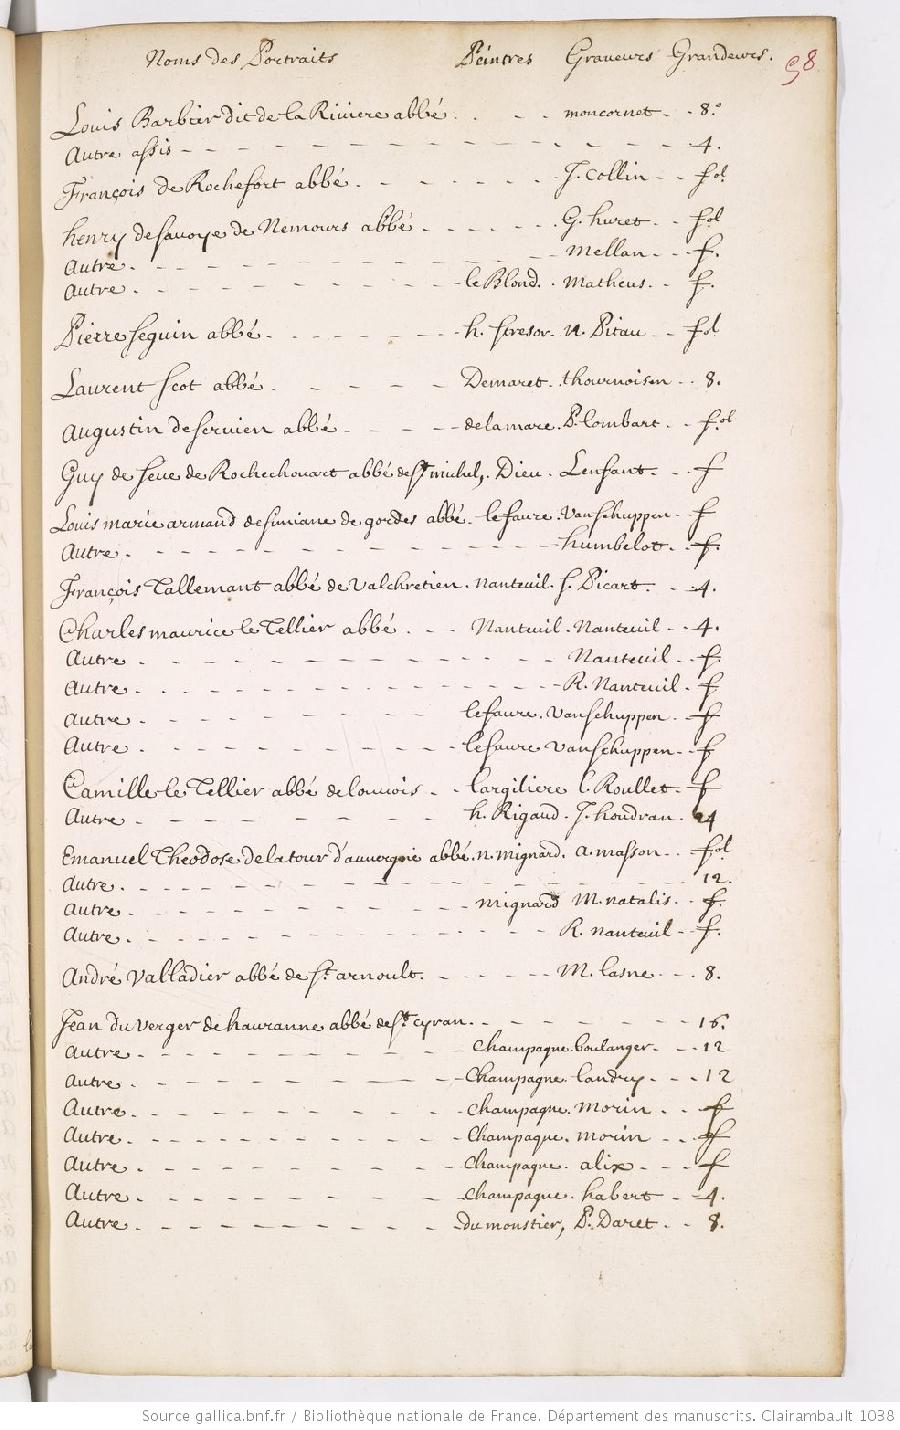 Noms des Portraits Peintres Graveurs Grandeurs. 98
Louis Barbier dit de la Riviere abbé . . - - moncornet - - 8.°
Autre assis - - - - - - - - - - 4.
François de Rochefort abbé . - - - - - J. Collin - - fol
henry de savoye de Nemours abbé . . - - - . G. huret . - fol
Autre . - - - - - - - - - mellan - - f.
Autre . - - - - - - - - le Blond . . Matheus . - f.
Pierre seguin abbé - - - - - - h. stresor - N. Pitau - - fol
Laurent scot abbé . - - - - Demaret . thournoisen - - 8.
Augustin de servien abbé - - - - - de la mare . P. lombart . - fol
Guy de seve de Rochechouart abbé de St. michel, . Dieu . Lenfant - - f
Louis marie armand de simiane de gordes abbé . le favre . Vanschuppen - f
Autre . - - - - - - - - - humbelot . - f.
François Tallemant abbé de Valchretien . nanteuil . s. Picart . - 4.
Charles maurice le Tellier abbé . - - Nanteuil . Nanteuil - - 4.
Autre . - - - - - - - - - Nanteuil - - f.
Autre . - - - - - - - - - R. Nanteuil . - f
Autre . - - - - - - - le favre . Vanschuppen . - f
Autre . - - - - - - - le favre Vanschuppen - - f
Camille le Tellier abbé de louvois . - largiliere l. Roullet - f
Autre . - - - - - - - h. Rigaud . J. houdran . 24
Emanuel Theodose de la tour d'auvergne abbé . n. mignard . a. masson . . fol
Autre . - - - - - - - - - - - 12.
Autre . - - - - - - - mignard M. natalis . - f.
Autre . - - - - - - - - - R. nanteuil - - f.
André Valladier abbé de St. arnoult . - - - - M. lasne - - - 8.
Jean du verger de hauranne abbé de St. cyran . . - - - - - - 16.
Autre . - - - - - - - Champagne . boulanger . - - 12
Autre . - - - - - - - Champagne . landry - - - 12
Autre . - - - - - - - Champagne . morin . . - f
Autre . - - - - - - - Champagne . morin . . - f
Autre . - - - - - - - Champagne . alix - - - f
Autre . - - - - - - - Champagne . habert - - 4.
Autre . - - - - - - - du moustier, P. Daret . . - 8.
Source gallica.bnf.fr / Bibliothèque nationale de France. Département des manuscrits. Clairambault 1038